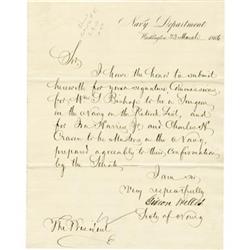 Navy Department
Washington 23 March 1866
Sir,
I have the honor to submit
herewith for your signature Commissions
for Wm. P. Bishop to be a Surgeon
in the Navy on the Retired List, and
for Ira Harris Jr. and Charles H.
Craven to be in the Navy,
prepared agreeably to their confirmation
by the Senate.
I am Sir
Very respectfully
Gideon Welles
Secty of Navy
The President